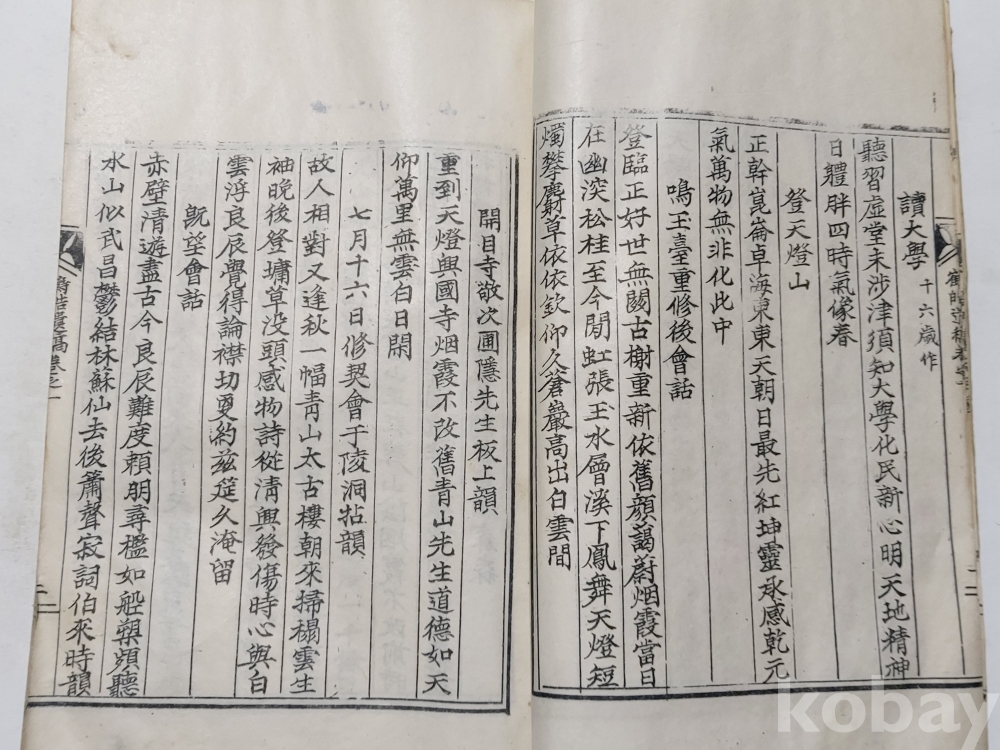 讀大學 十六歲作
聽習虛堂未涉津須知大學化民新心明天地精神
日軆胖四時氣像春
登天燈山
正幹崑崙卓海東東天朝日最先紅坤靈承感乾元
氣萬物無非化此中
鳴玉臺重修後會話
登臨正好世無關古榭重新依舊顔藹蔚烟霞當日
在幽深松桂至今閒虹張玉水層溪下鳳舞天燈短
燭攀麝草依依欽仰久蒼巖高出白雲間
開目寺敬次圃隱先生板上韻
重到天燈興國寺烟霞不改舊青山先生道德如天
仰萬里無雲白日閑
七月十六日修契會于陵洞拈韻
故人相對又逢秋一幅青山太古樓朝來掃榻雲生
袖晩後登墉草沒頭感物詩從淸興發傷時心與白
雲浮良辰覺得論襟切更約兹筵久淹留
旣望會話
赤壁清遊盡古今良辰難度賴朋尋檻如船槊頻聽
水山似武昌鬱結林蘇仙去後簫聲寂詞伯來時韻
kobay